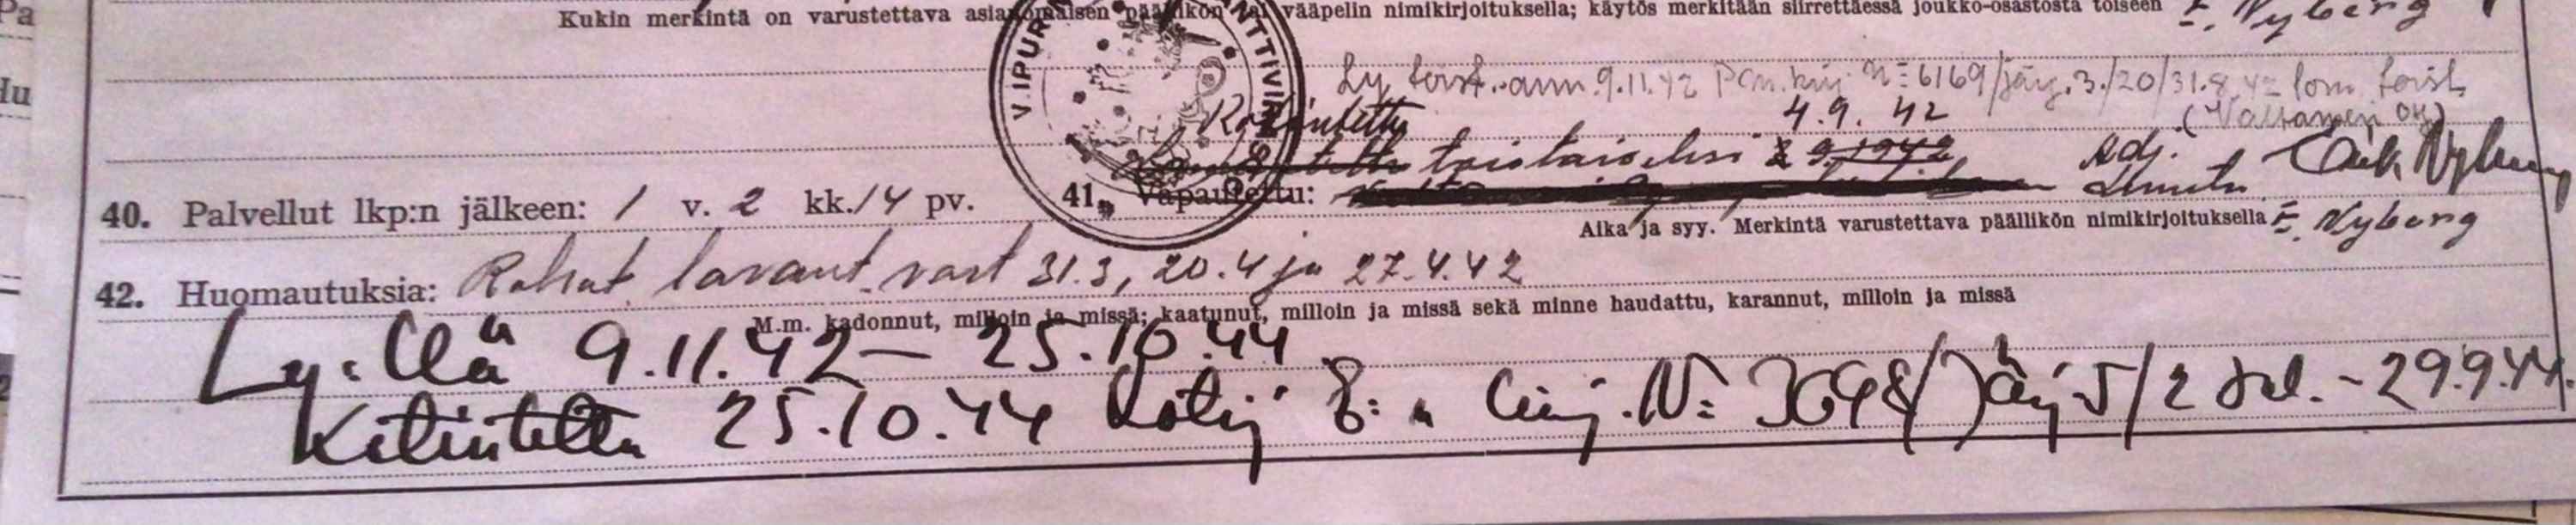 Pa
Kukin merkintä on varustettava asianomaisen päällikön tai vääpelin nimikirjoituksella; käytös merkitään siirrettäessä joukko-osastosta toiseen E. Nyberg
V.IPURI NTTIVIR
Ly. toist. ann. 9.11.42 Pm. kirj. N:6169/Järj.3./20/31.8.42 lom. toist.
Kotiutettu 4.9.42 (Valtameri Oy)
toistaiseksi 2 9.1942 Adj. Erik Nyberg
40. Palvellut lkp:n jälkeen: 1 v. 2 kk. 14 pv. 41. Vapautettu:
Aika ja syy. Merkintä varustettava päällikön nimikirjoituksella E. Nyberg
42. Huomautuksia: Rokot. lavant. vast 31.3, 20.4 ja 27.4.42
M.m. kadonnut, milloin ja missä; kaatunut, milloin ja missä sekä minne haudattu, karannut, milloin ja missä
Ly:llä 9.11.42 – 25.10.44
Kotiutettu 25.10.44 Kotij. E: kirj. N: 3648/Järj 5/2 sal. - 29.9.44.